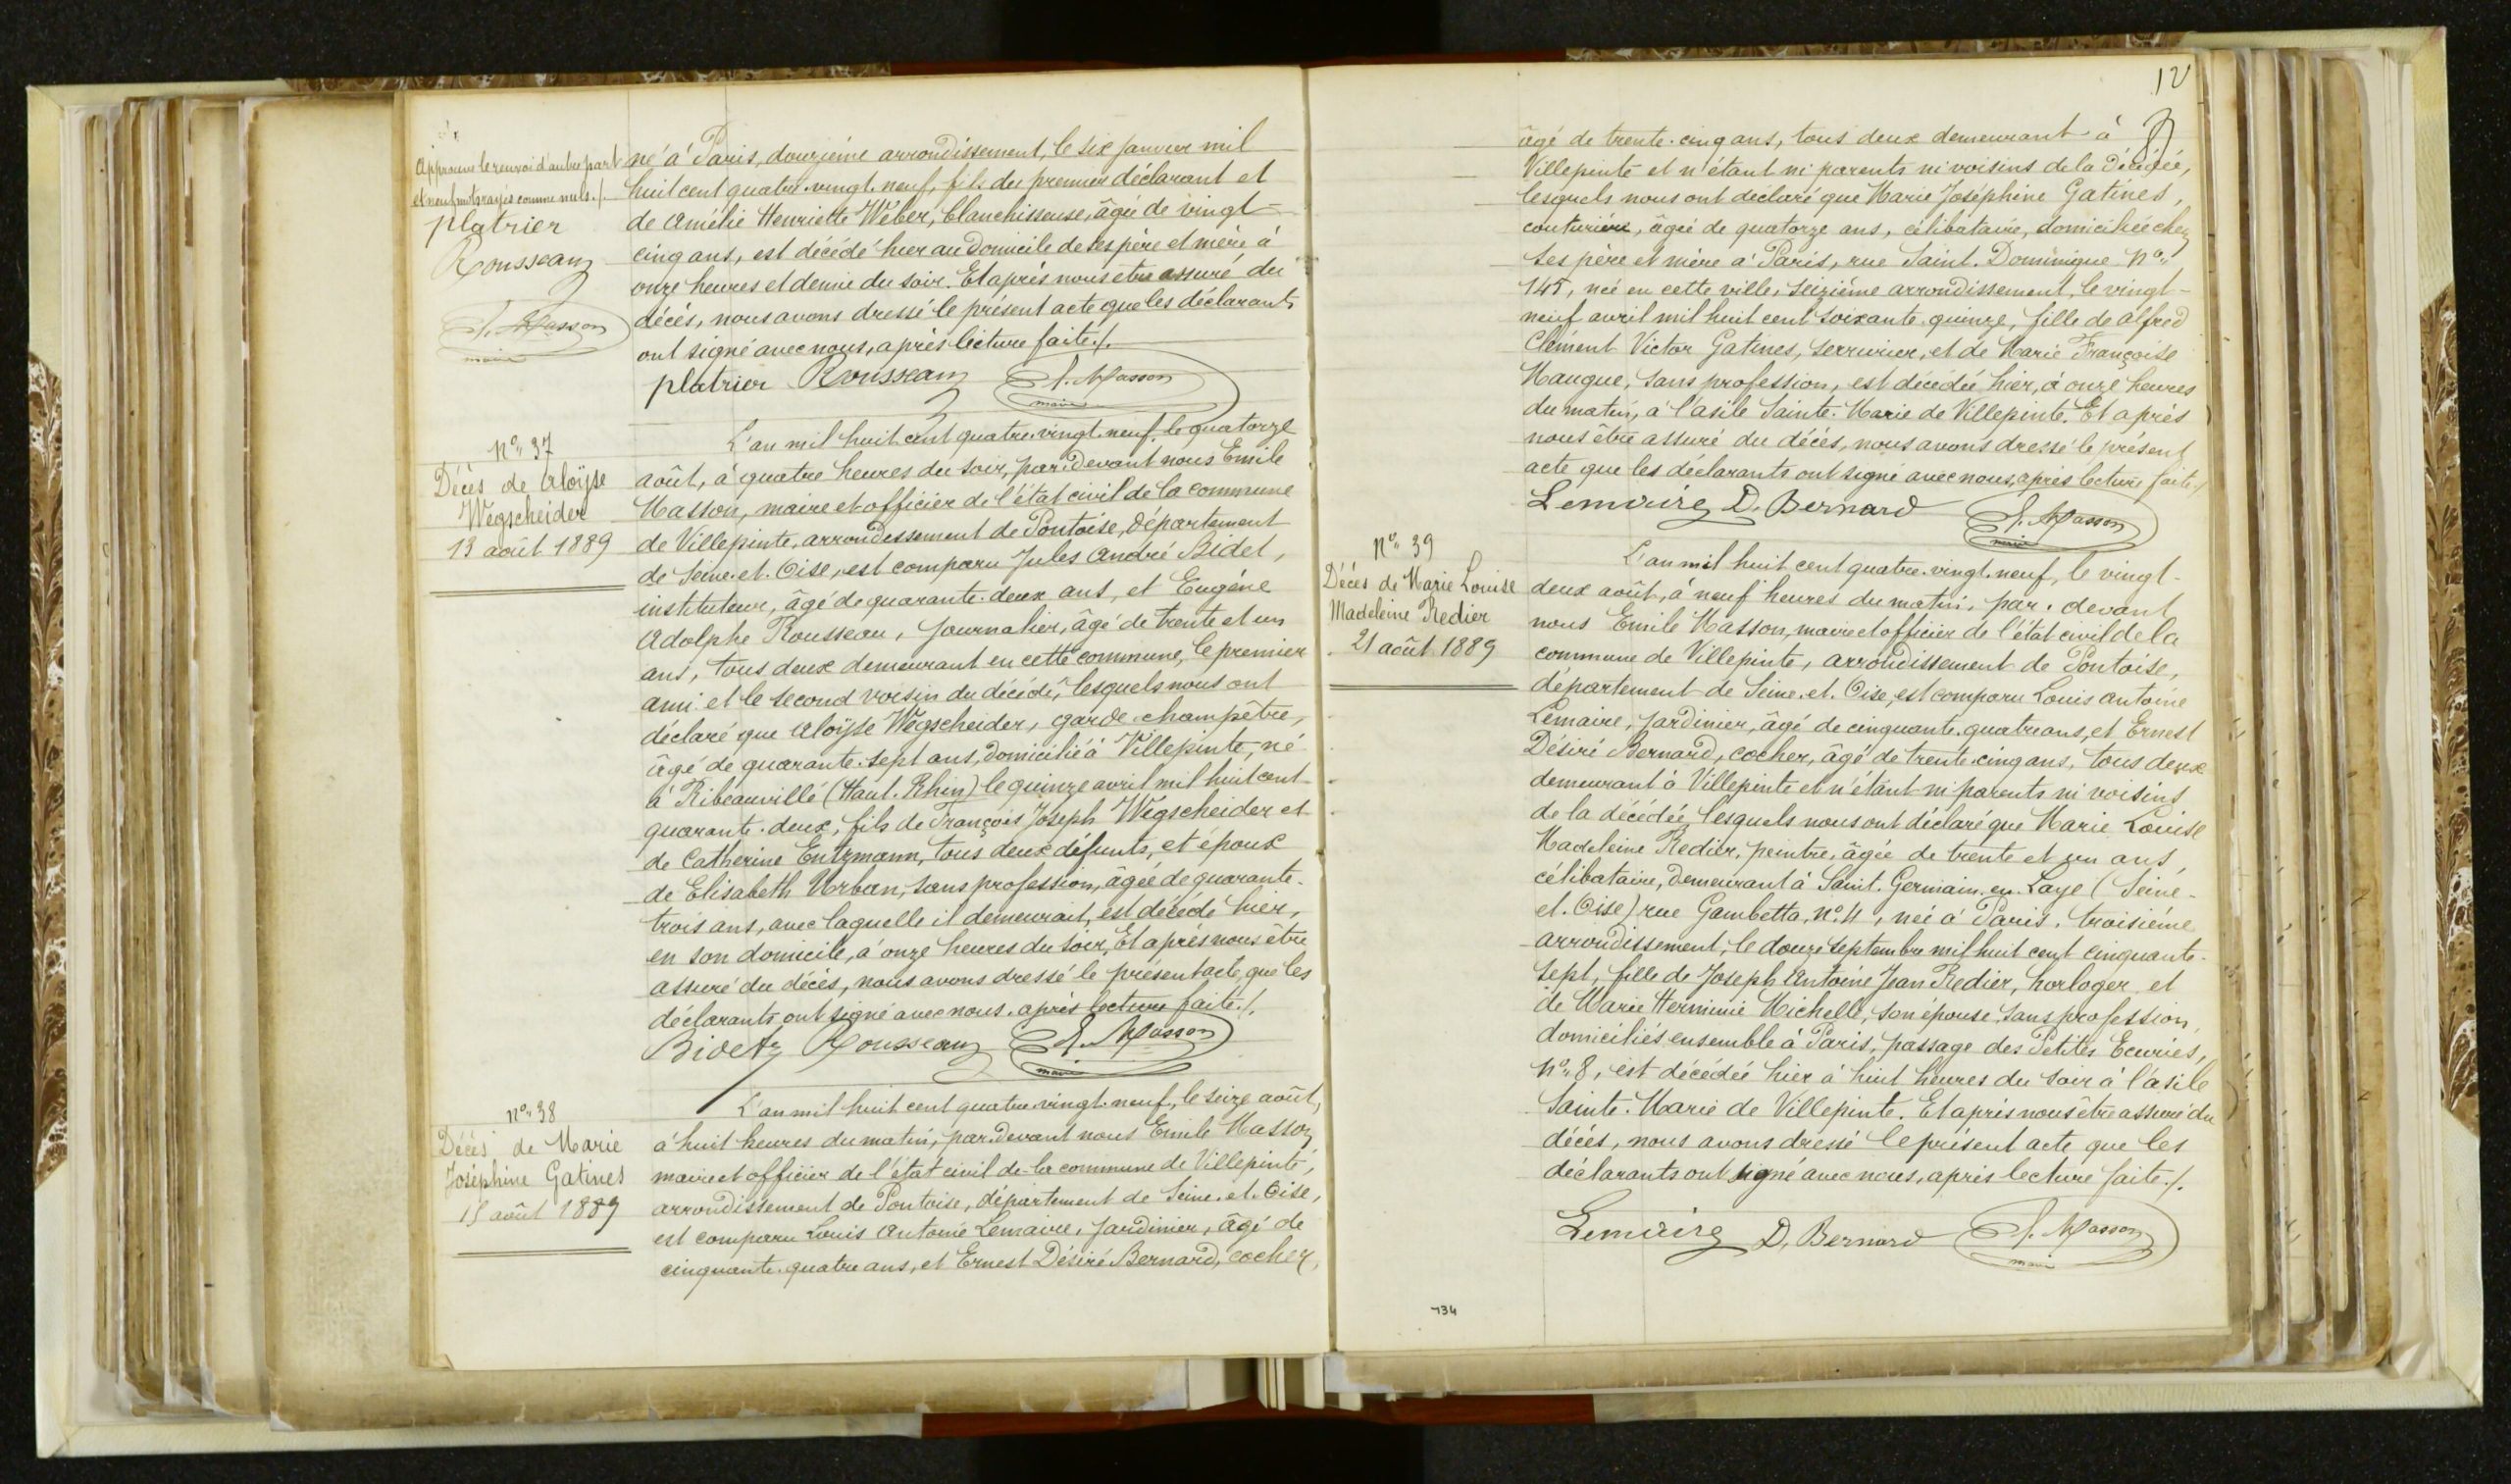 approuvé le renvoi d'autre part
et neuf mots rayés comme nuls ./.
platrier
Rousseau
E. Masson
maire
né à Paris, douzième arrondissement, le six janvier mil
huit cent quatre-vingt-neuf, fils du premier déclarant et
de Amélie Henriette Wéber, blanchisseuse, âgée de vingt-
cinq ans, est décédé hier au domicile de ses père et mère à
onze heures et demie du soir. Et après nous être assuré du
décès, nous avons dressé le présent acte que les déclarants
ont signé avec nous, après lecture faite ./.
platrier Rousseau E. Masson
maire
N° 37
Décès de Aloÿse
Wegscheider
13 août 1889
L'an mil huit cent quatre-vingt-neuf, le quatorze
août, à quatre heures du soir, par-devant nous Emile
Masson, maire et officier de l'état civil de la commune
de Villepinte, arrondissement de Pontoise, département
de Seine-et-Oise, est comparu Jules André Bidet,
instituteur, âgé de quarante-deux ans, et Eugène
Adolphe Rousseau, journalier, âgé de trente et un
ans, tous deux demeurant en cette commune, le premier
ami et le second voisin du décédé, lesquels nous ont
déclaré que Aloÿse Wegscheider, garde-champêtre,
âgé de quarante-sept ans, domicilié à Villepinte, né
à Ribeauvillé (Haut-Rhin) le quinze avril mil huit cent
quarante-deux, fils de François Joseph Wegscheider et
de Catherine Entzmann, tous deux défunts, et époux
de Elisabeth Urban, sans profession, âgée de quarante-
trois ans, avec laquelle il demeurait, est décédé hier,
en son domicile, à onze heures du soir. Et après nous être
assuré du décès, nous avons dressé le présent acte que les
déclarants ont signé avec nous, après lecture faite ./.
Bidet Rousseau E. Masson
maire
N° 38
Décès de Marie
Joséphine Gatines
15 août 1889
L'an mil huit cent quatre-vingt-neuf, le seize août,
à huit heures du matin, par-devant nous Emile Masson
maire et officier de l'état civil de la commune de Villepinte,
arrondissement de Pontoise, département de Seine-et-Oise,
est comparu Louis Antoine Lemaire, jardinier, âgé de
cinquante-quatre ans, et Ernest Désiré Bernard, cocher,
12
âgé de trente-cinq ans, tous deux demeurant à
Villepinte et n'étant ni parents ni voisins de la décédée,
lesquels nous ont déclaré que Marie Joséphine Gatines,
couturière, âgée de quatorze ans, célibataire, domiciliée chez
ses père et mère à Paris, rue Saint-Dominique N°
145, née en cette ville, seizième arrondissement, le vingt-
neuf avril mil huit cent soixante-quinze, fille de Alfred
Clément Victor Gatines, serrurier, et de Marie Françoise
Maugue, sans profession, est décédée hier, à onze heures
du matin, à l'asile Sainte-Marie de Villepinte. Et après
nous être assuré du décès, nous avons dressé le présent
acte que les déclarants ont signé avec nous, après lecture faite ./.
Lemaire D. Bernard E. Masson
maire
N° 39
Décès de Marie Louise
Madeleine Redier
21 août 1889
L'an mil huit cent quatre-vingt-neuf, le vingt-
deux août, à neuf heures du matin, par-devant
nous Emile Masson, maire et officier de l'état civil de la
commune de Villepinte, arrondissement de Pontoise,
département de Seine-et-Oise, est comparu Louis Antoine
Lemaire, jardinier, âgé de cinquante-quatre ans, et Ernest
Désiré Bernard, cocher, âgé de trente-cinq ans, tous deux
demeurant à Villepinte et n'étant ni parents ni voisins
de la décédée, lesquels nous ont déclaré que Marie Louise
Madeleine Redier, peintre, âgée de trente et un ans,
célibataire, demeurant à Saint-Germain-en-Laye (Seine-
et-Oise) rue Gambetta, N° 4, née à Paris, troisième
arrondissement, le douze septembre mil huit cent cinquante-
sept, fille de Joseph Antoine Jean Redier, horloger et
de Marie Herminie Michelle, son épouse, sans profession,
domiciliés ensemble à Paris, passage des Petites Ecuries,
N° 8, est décédée hier à huit heures du soir à l'asile
Sainte-Marie de Villepinte. Et après nous être assuré du
décès, nous avons dressé le présent acte que les
déclarants ont signé avec nous, après lecture faite ./.
Lemaire D. Bernard E. Masson
maire
134